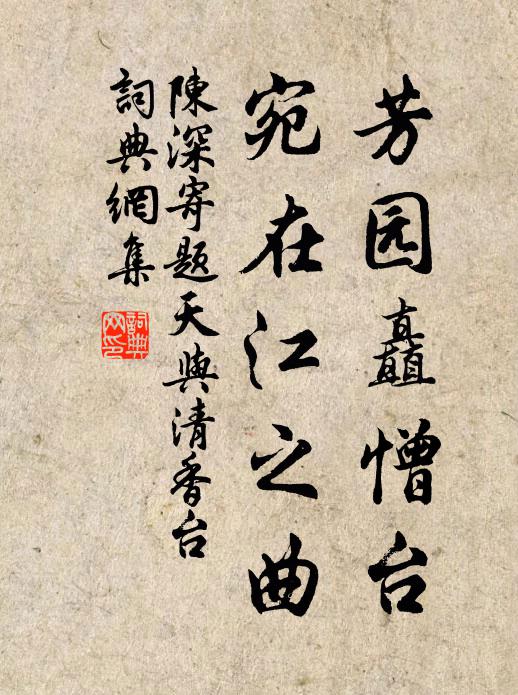 芳园矗憎台
宛在江之曲
陳深寄題天與清香台
詞典網集
詞典
网印